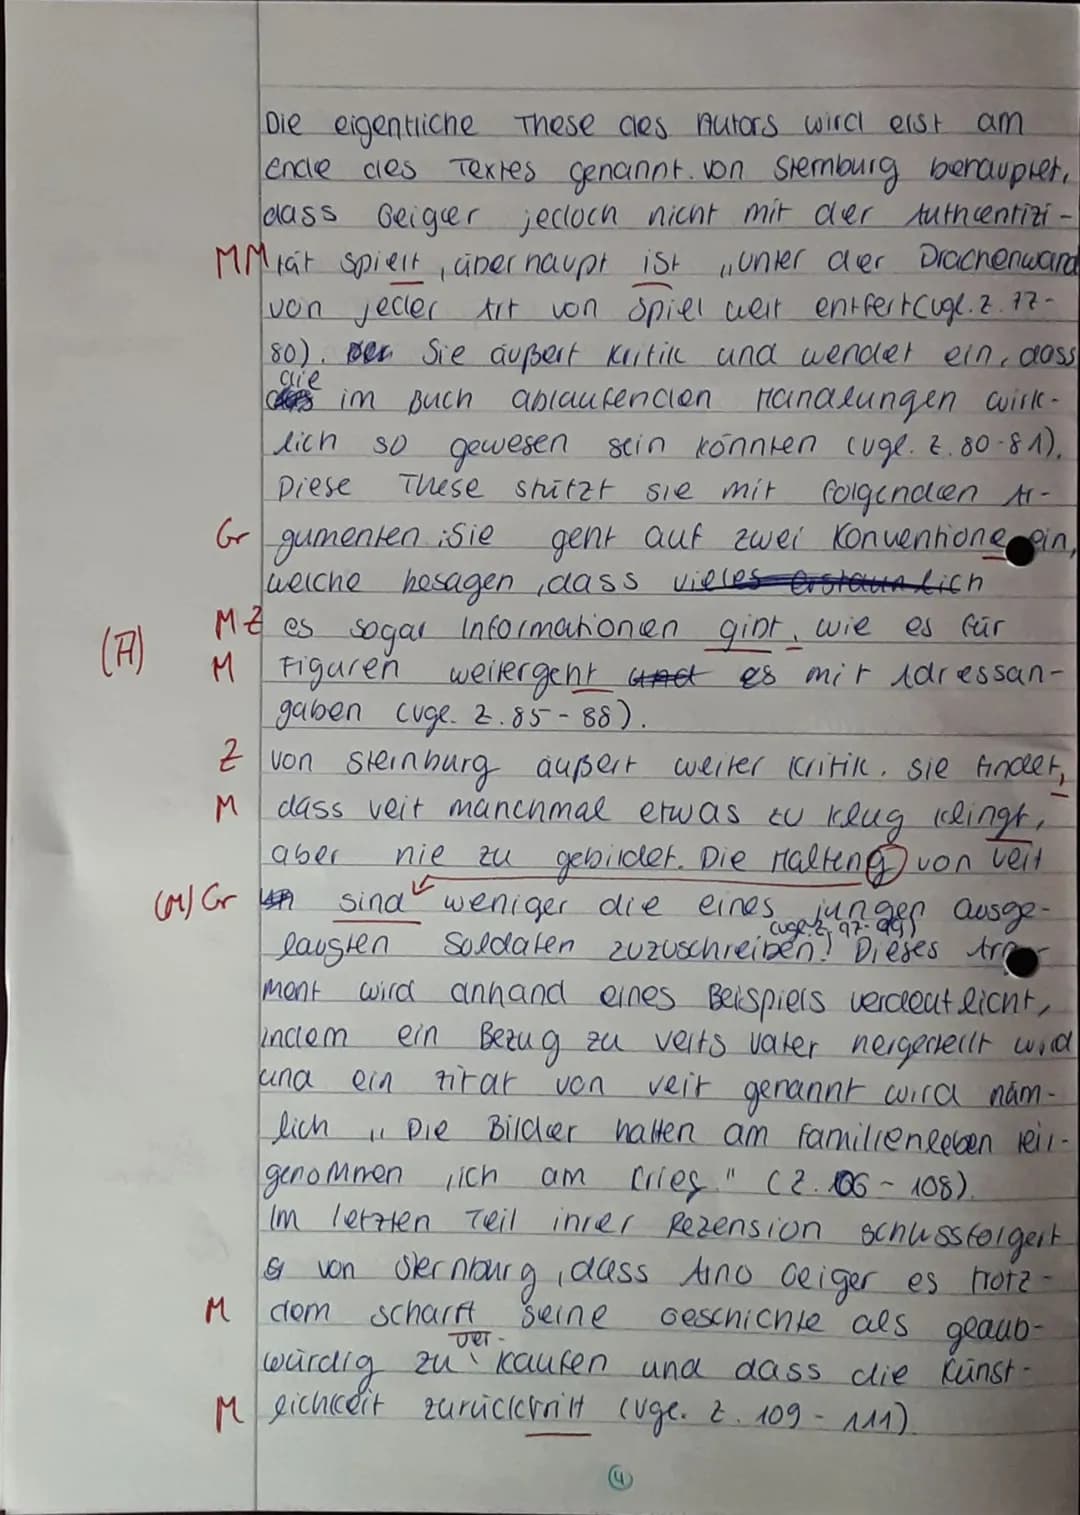 Die eigentliche These des Autors wird erst am
Ende des Textes genannt. Von Sternburg behauptet,
dass Geiger jedoch nicht mit der Authentizi-
MM tät spielt, überhaupt ist „Unter der Drachenwand
von jeder Art von Spiel weit entfert (vgl. Z. 77-
80). Sie äußert Kritik und wendet ein, dass
die
im Buch ablaufenden Handlungen wirk-
lich so gewesen sein könnten (vgl. Z. 80-81).
Diese These stützt sie mit folgenden Ar-
Gr gumenten: Sie geht auf zwei Konventione ein,
welche besagen, dass vieles erstaunlich
MZ es sogar Informationen gibt, wie es für
(A) M Figuren weitergeht und es mit Adressan-
gaben (vgl. Z. 85-88).
Z von Steinburg äußert weiter Kritik. Sie findet,
M dass Veit manchmal etwas zu klug klingt,
aber nie zu gebildet. Die Halteng von Veit
(M) Gr sind weniger die eines jungen ausge-
(vgl. Z. 97-99)
laugten Soldaten zuzuschreiben! Dieses Arg
ment wird anhand eines Beispiels verdeutlicht,
indem ein Bezug zu Veits Vater hergestellt wird
und ein Zitat von Veit genannt wird näm-
lich „Die Bilder hatten am Familienleben teil-
genommen, ich am Krieg" (Z. 106-108).
Im letzten Teil ihrer Rezension schlussfolgert
von Sternburg, dass Arno Geiger es trotz-
M dem schafft seine Geschichte als glaub-
ver-
würdig zu kaufen und dass die Künst-
M lichkeit zurücktritt (vgl. Z. 109-111).
4